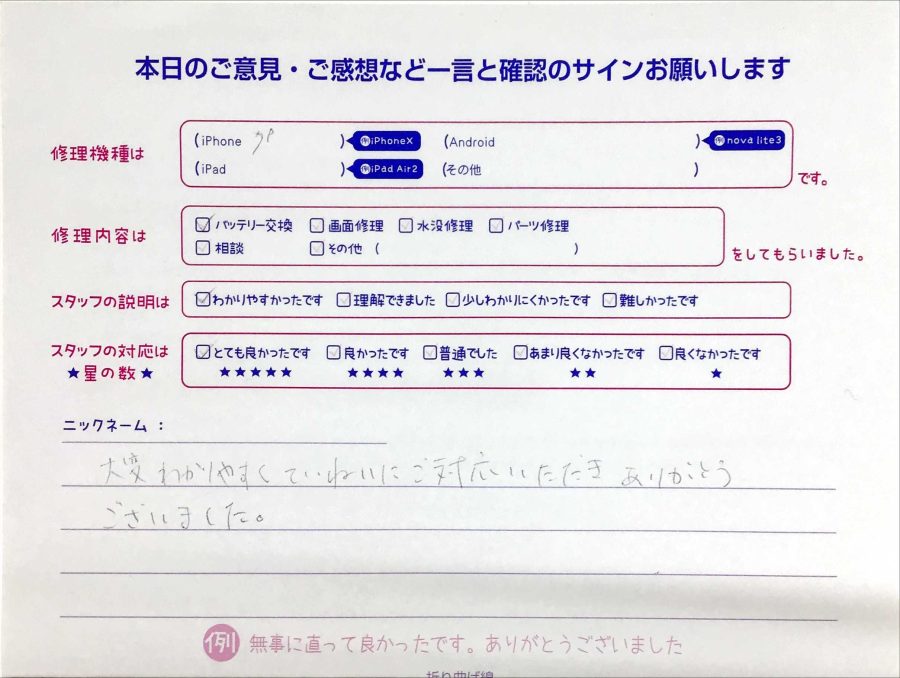 本日のご意見・ご感想など一言と確認のサインお願いします
修理機種は
(iPhone 8P ) 例iPhoneX (Android ) 例nova lite3
(iPad ) 例iPad Air2 (その他 ) です。
修理内容は
バッテリー交換 画面修理 水没修理 パーツ修理
相談 その他 ( ) をしてもらいました。
スタッフの説明は わかりやすかったです 理解できました 少しわかりにくかったです 難しかったです
スタッフの対応は とても良かったです 良かったです 普通でした あまり良くなかったです 良くなかったです
★星の数★ ★★★★★ ★★★★ ★★★ ★★ ★
ニックネーム：
大変わかりやすくていねいにご対応いただきありがとう
ございました。
例 無事に直って良かったです。ありがとうございました
折り曲げ線